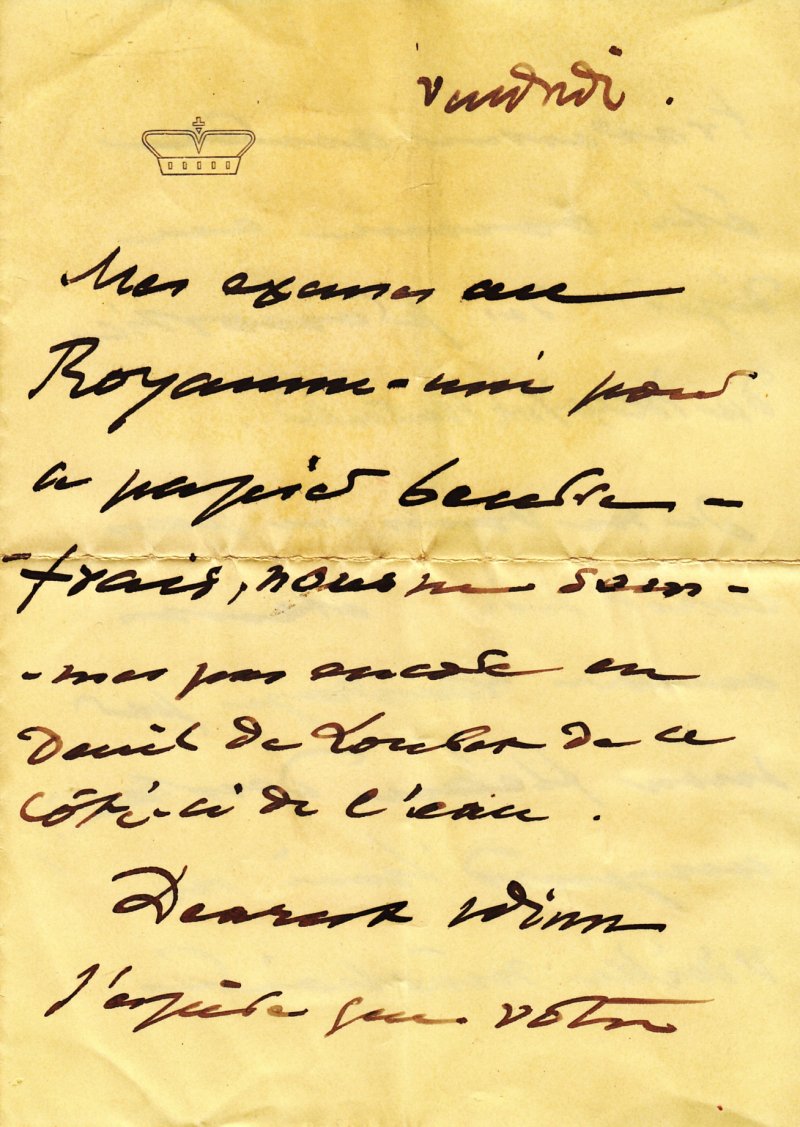 vendredi.
Mes excuses au
Royaume-uni pour
ce papier beurre-
-frais, nous ne som-
-mes pas encore en
deuil de Loulou de ce
côté-ci de l'eau.
Dearest Winn
j'espère que votre